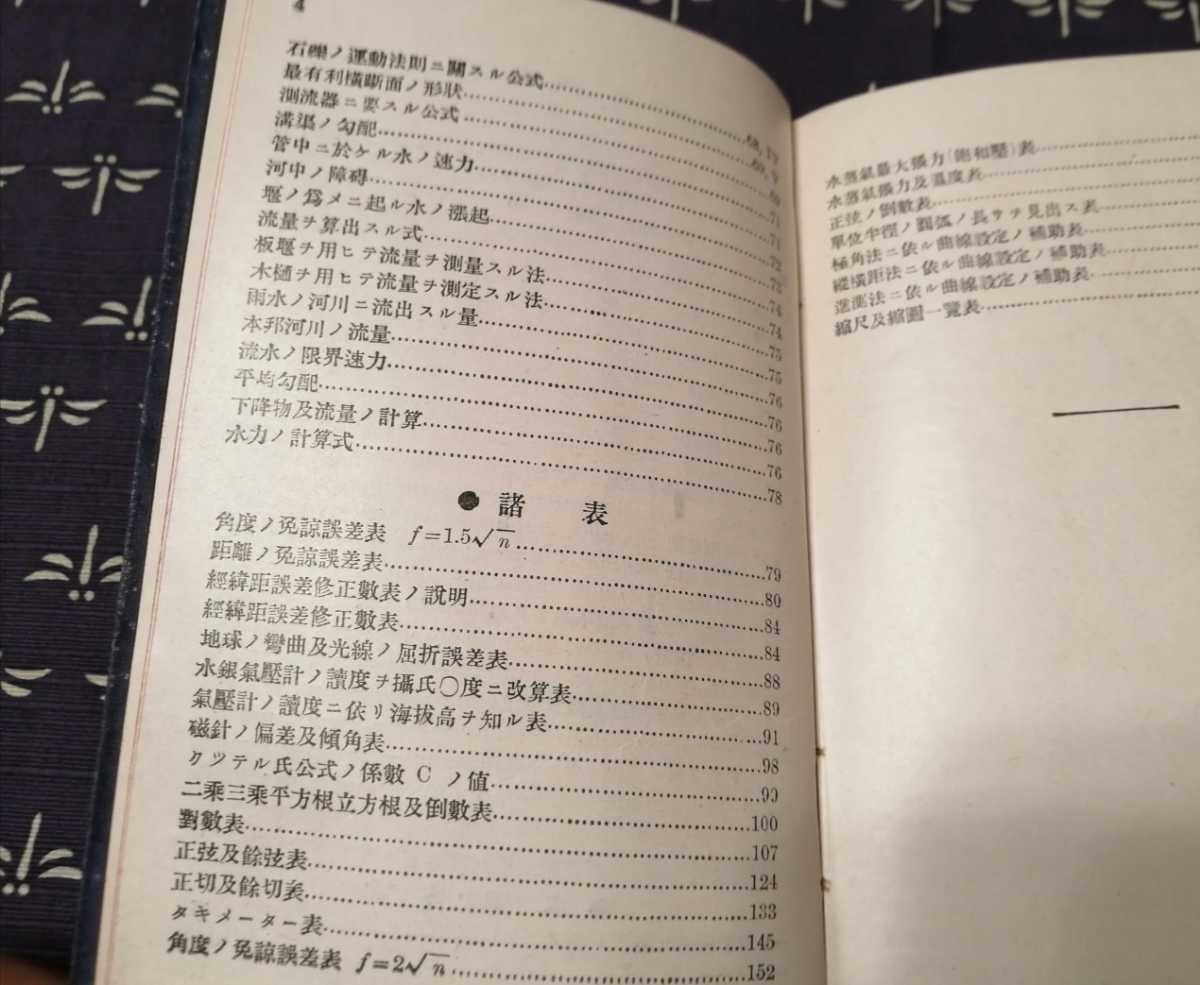 4
石礫ノ運動法則ニ關スル公式
最有利横斷面ノ形狀
測流器ニ要スル公式
溝渠ノ勾配
管中ニ於ケル水ノ速力
河中ノ障碍
堰ノ爲メニ起ル水ノ漲起
流量ヲ算出スル式
板堰ヲ用ヒテ流量ヲ測量スル法
木樋ヲ用ヒテ流量ヲ測定スル法
雨水ノ河川ニ流出スル量
本邦河川ノ流量
流水ノ限界速力
平均勾配
下降物及流量ノ計算
水力ノ計算式……78
●諸 表
角度ノ免諒誤差表 f=1.5√n……79
距離ノ免諒誤差表……80
經緯距誤差修正數表ノ說明……84
經緯距誤差修正數表……84
地球ノ彎曲及光線ノ屈折誤差表……88
水銀氣壓計ノ讀度ヲ攝氏〇度ニ改算表……89
氣壓計ノ讀度ニ依リ海拔高ヲ知ル表……91
磁針ノ偏差及傾角表……98
クツテル氏公式ノ係數 C ノ値……99
二乘三乘平方根立方根及倒數表……100
對數表……107
正弦及餘弦表……124
正切及餘切表……133
タキメーター表……145
角度ノ免諒誤差表 f=2√n……152
水蒸氣最大張力(飽和壓)表
水蒸氣張力及溫度表
正弦ノ倒數表
單位半徑ノ圓弧ノ長サヲ見出ス表
極角法ニ依ル曲線設定ノ補助表
縱橫距法ニ依ル曲線設定ノ補助表
進測法ニ依ル曲線設定ノ補助表
縮尺及縮圖一覽表